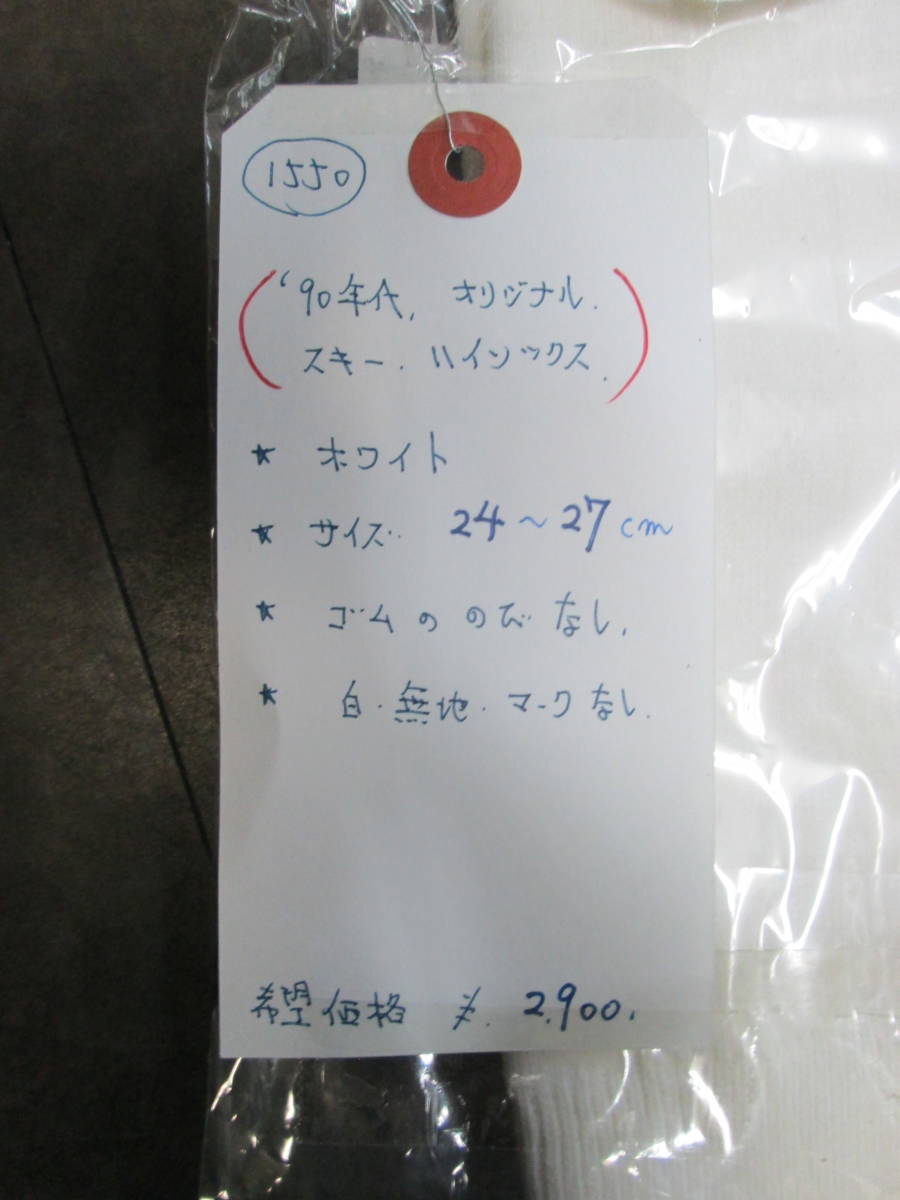 1550
'90年代, オリジナル.
スキー. ハイソックス.
★ ホワイト
★ サイズ 24～27cm
★ ゴムの のび なし.
★ 白・無地・マークなし.
希望価格 ¥. 2,900.